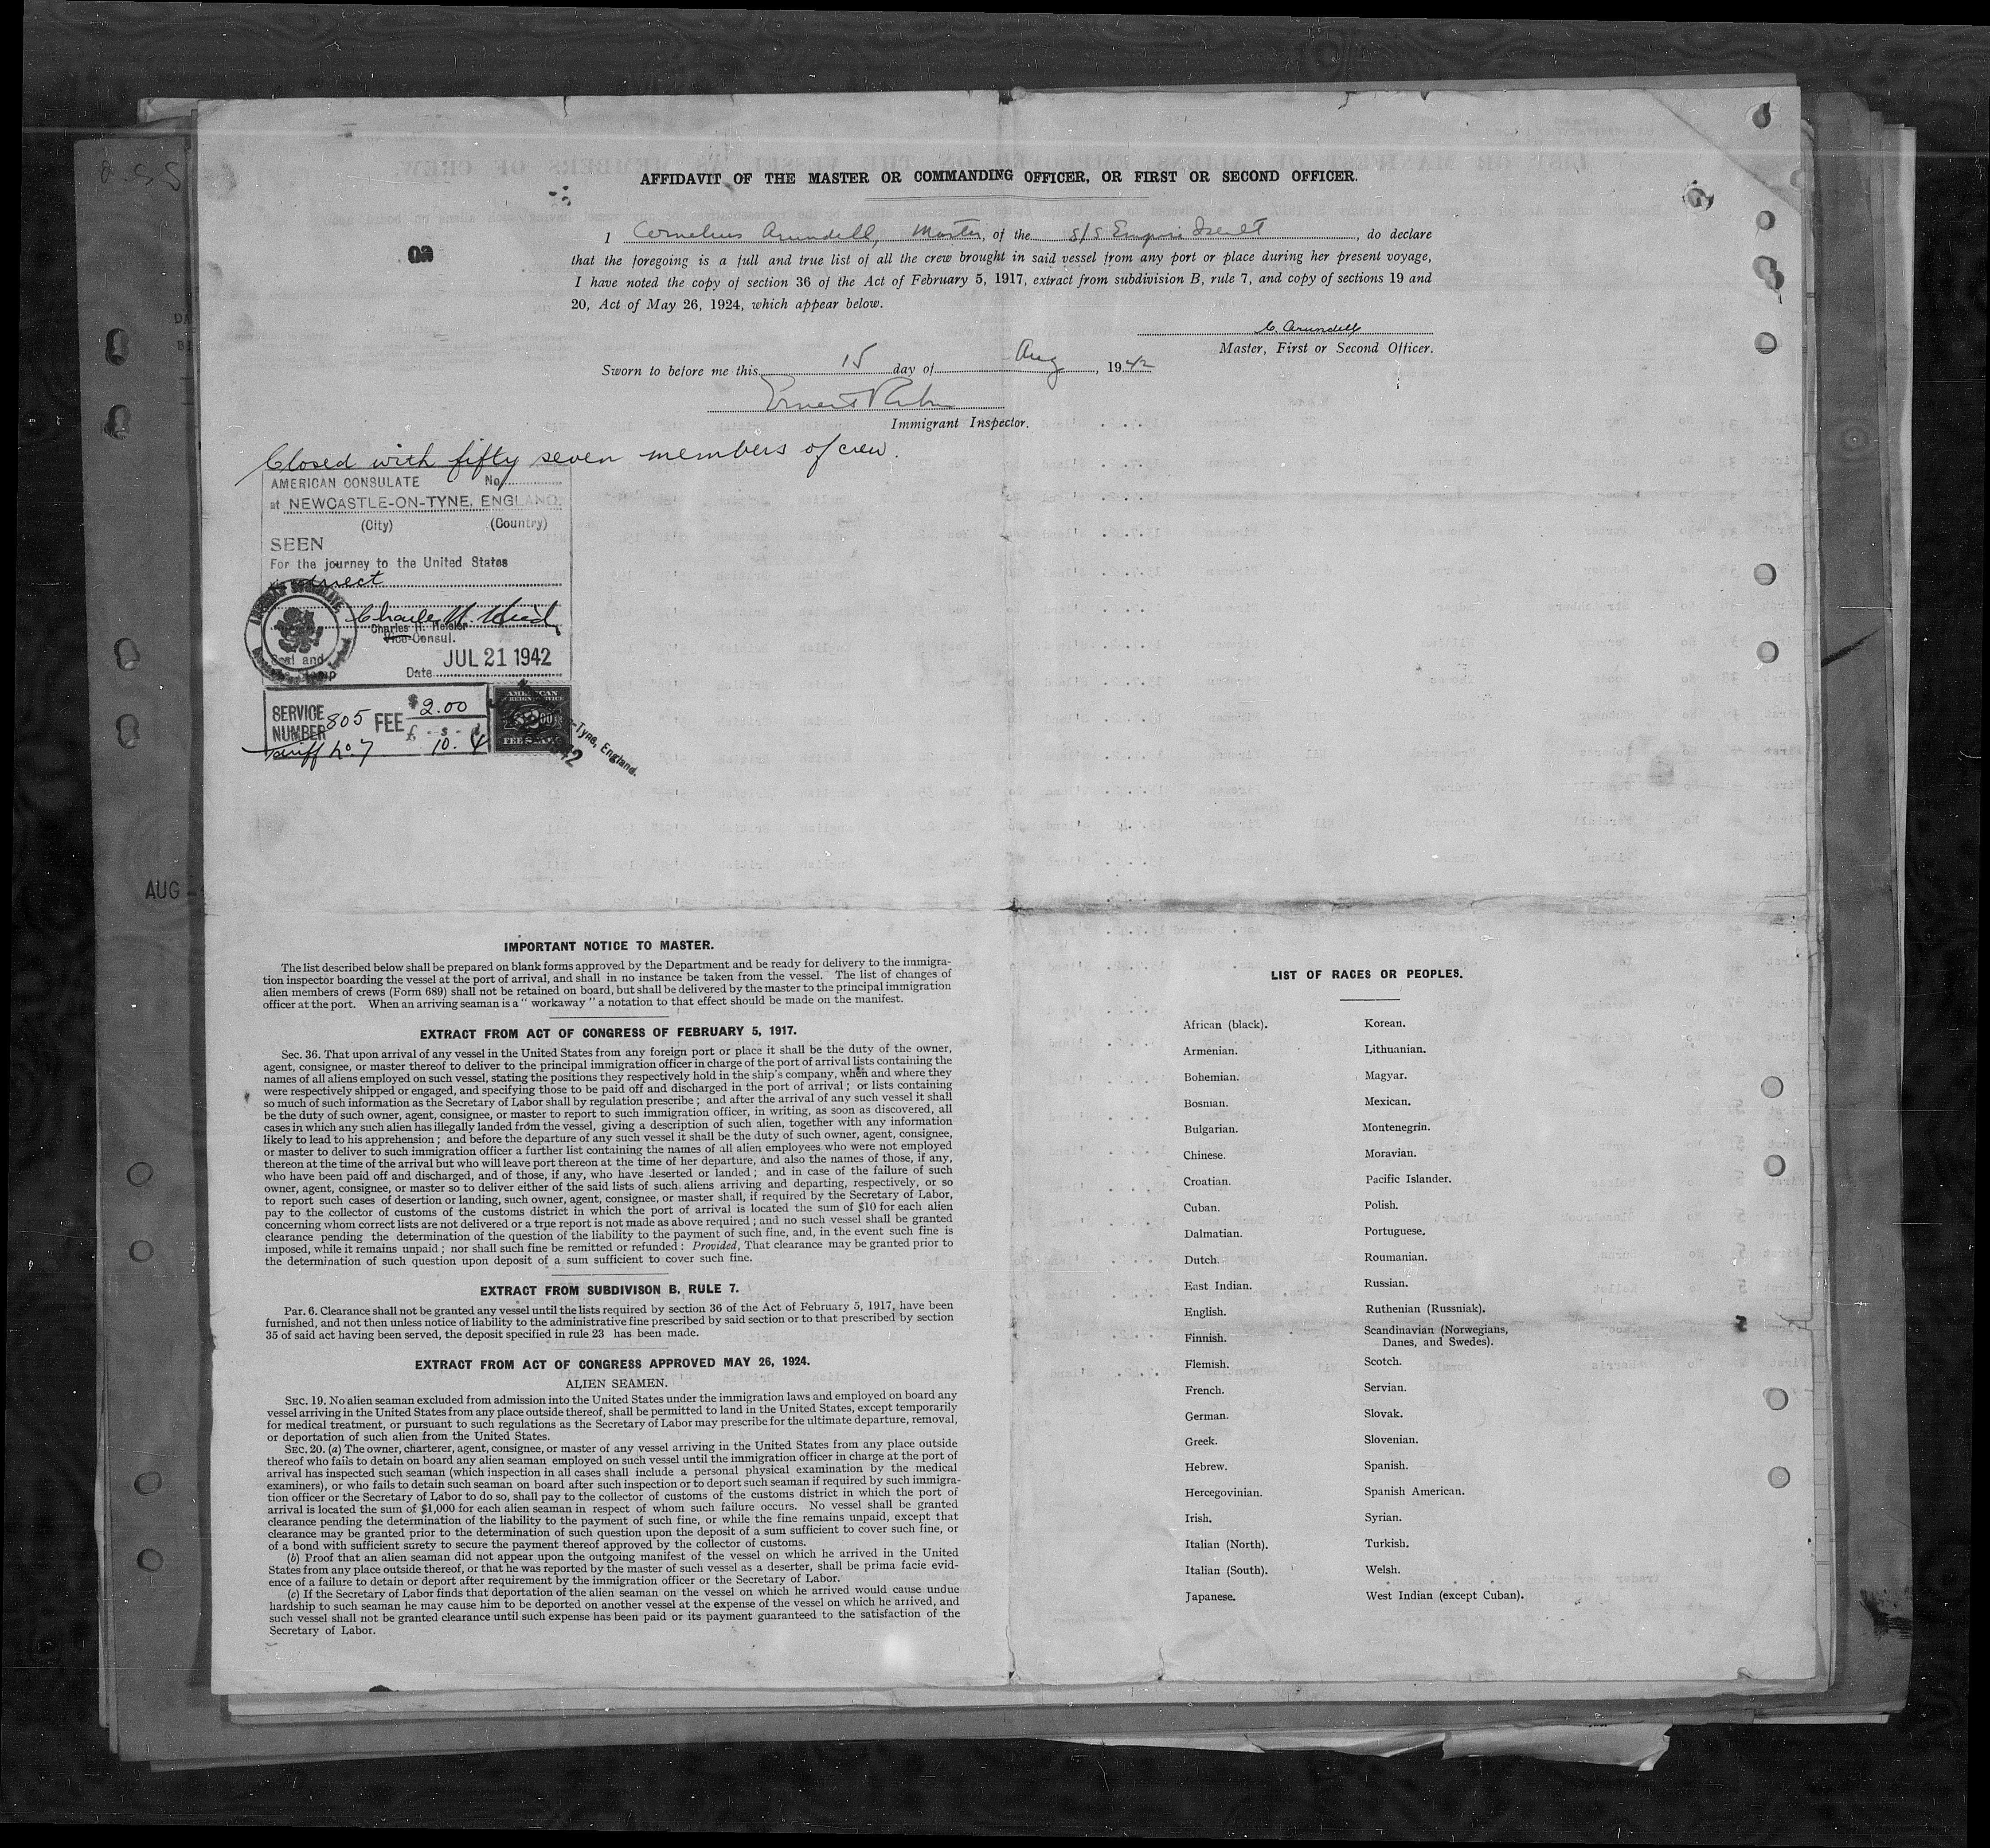 AFFIDAVIT OF THE MASTER OR COMMANDING OFFICER, OR FIRST OR SECOND OFFICER.
I Cornelius Arundell, Master, of the S/S Empire Iseult, do declare
that the foregoing is a full and true list of all the crew brought in said vessel from any port or place during her present voyage,
I have noted the copy of section 36 of the Act of February 5, 1917, extract from subdivision B, rule 7, and copy of sections 19 and
20, Act of May 26, 1924, which appear below.
C. Arundell
Master, First or Second Officer.
Sworn to before me this 15 day of Aug, 1942
Ernest
Immigrant Inspector.
Closed with fifty seven members of crew.
AMERICAN CONSULATE No.
at NEWCASTLE-ON-TYNE, ENGLAND.
(City) (Country)
SEEN
For the journey to the United States
via direct
Charles H. Heisler
Vice-Consul.
Seal and
Stamp
Date JUL 21 1942
SERVICE NUMBER 805 FEE $2.00
£ - s - d
Tariff No. 7 10. 4
-Tyne, England.
AUG
IMPORTANT NOTICE TO MASTER.
The list described below shall be prepared on blank forms approved by the Department and be ready for delivery to the immigra-
tion inspector boarding the vessel at the port of arrival, and shall in no instance be taken from the vessel. The list of changes of
alien members of crews (Form 689) shall not be retained on board, but shall be delivered by the master to the principal immigration
officer at the port. When an arriving seaman is a "workaway" a notation to that effect should be made on the manifest.
EXTRACT FROM ACT OF CONGRESS OF FEBRUARY 5, 1917.
Sec. 36. That upon arrival of any vessel in the United States from any foreign port or place it shall be the duty of the owner,
agent, consignee, or master thereof to deliver to the principal immigration officer in charge of the port of arrival lists containing the
names of all aliens employed on such vessel, stating the positions they respectively hold in the ship's company, when and where they
were respectively shipped or engaged, and specifying those to be paid off and discharged in the port of arrival; or lists containing
so much of such information as the Secretary of Labor shall by regulation prescribe; and after the arrival of any such vessel it shall
be the duty of such owner, agent, consignee, or master to report to such immigration officer, in writing, as soon as discovered, all
cases in which any such alien has illegally landed from the vessel, giving a description of such alien, together with any information
likely to lead to his apprehension; and before the departure of any such vessel it shall be the duty of such owner, agent, consignee,
or master to deliver to such immigration officer a further list containing the names of all alien employees who were not employed
thereon at the time of the arrival but who will leave port thereon at the time of her departure, and also the names of those, if any,
who have been paid off and discharged, and of those, if any, who have deserted or landed; and in case of the failure of such
owner, agent, consignee, or master so to deliver either of the said lists of such aliens arriving and departing, respectively, or so
to report such cases of desertion or landing, such owner, agent, consignee, or master shall, if required by the Secretary of Labor,
pay to the collector of customs of the customs district in which the port of arrival is located the sum of $10 for each alien
concerning whom correct lists are not delivered or a true report is not made as above required; and no such vessel shall be granted
clearance pending the determination of the question of the liability to the payment of such fine, and, in the event such fine is
imposed, while it remains unpaid; nor shall such fine be remitted or refunded: Provided, That clearance may be granted prior to
the determination of such question upon deposit of a sum sufficient to cover such fine.
EXTRACT FROM SUBDIVISON B, RULE 7.
Par. 6. Clearance shall not be granted any vessel until the lists required by section 36 of the Act of February 5, 1917, have been
furnished, and not then unless notice of liability to the administrative fine prescribed by said section or to that prescribed by section
35 of said act having been served, the deposit specified in rule 23 has been made.
EXTRACT FROM ACT OF CONGRESS APPROVED MAY 26, 1924.
ALIEN SEAMEN.
SEC. 19. No alien seaman excluded from admission into the United States under the immigration laws and employed on board any
vessel arriving in the United States from any place outside thereof, shall be permitted to land in the United States, except temporarily
for medical treatment, or pursuant to such regulations as the Secretary of Labor may prescribe for the ultimate departure, removal,
or deportation of such alien from the United States.
SEC. 20. (a) The owner, charterer, agent, consignee, or master of any vessel arriving in the United States from any place outside
thereof who fails to detain on board any alien seaman employed on such vessel until the immigration officer in charge at the port of
arrival has inspected such seaman (which inspection in all cases shall include a personal physical examination by the medical
examiners), or who fails to detain such seaman on board after such inspection or to deport such seaman if required by such immigra-
tion officer or the Secretary of Labor to do so, shall pay to the collector of customs of the customs district in which the port of
arrival is located the sum of $1,000 for each alien seaman in respect of whom such failure occurs. No vessel shall be granted
clearance pending the determination of the liability to the payment of such fine, or while the fine remains unpaid, except that
clearance may be granted prior to the determination of such question upon the deposit of a sum sufficient to cover such fine, or
of a bond with sufficient surety to secure the payment thereof approved by the collector of customs.
(b) Proof that an alien seaman did not appear upon the outgoing manifest of the vessel on which he arrived in the United
States from any place outside thereof, or that he was reported by the master of such vessel as a deserter, shall be prima facie evid-
ence of a failure to detain or deport after requirement by the immigration officer or the Secretary of Labor.
(c) If the Secretary of Labor finds that deportation of the alien seaman on the vessel on which he arrived would cause undue
hardship to such seaman he may cause him to be deported on another vessel at the expense of the vessel on which he arrived, and
such vessel shall not be granted clearance until such expense has been paid or its payment guaranteed to the satisfaction of the
Secretary of Labor.
LIST OF RACES OR PEOPLES.
African (black). Korean.
Armenian. Lithuanian.
Bohemian. Magyar.
Bosnian. Mexican.
Bulgarian. Montenegrin.
Chinese. Moravian.
Croatian. Pacific Islander.
Cuban. Polish.
Dalmatian. Portuguese.
Dutch. Roumanian.
East Indian. Russian.
English. Ruthenian (Russniak).
Finnish. Scandinavian (Norwegians,
Danes, and Swedes).
Flemish. Scotch.
French. Servian.
German. Slovak.
Greek. Slovenian.
Hebrew. Spanish.
Hercegovinian. Spanish American.
Irish. Syrian.
Italian (North). Turkish.
Italian (South). Welsh.
Japanese. West Indian (except Cuban).